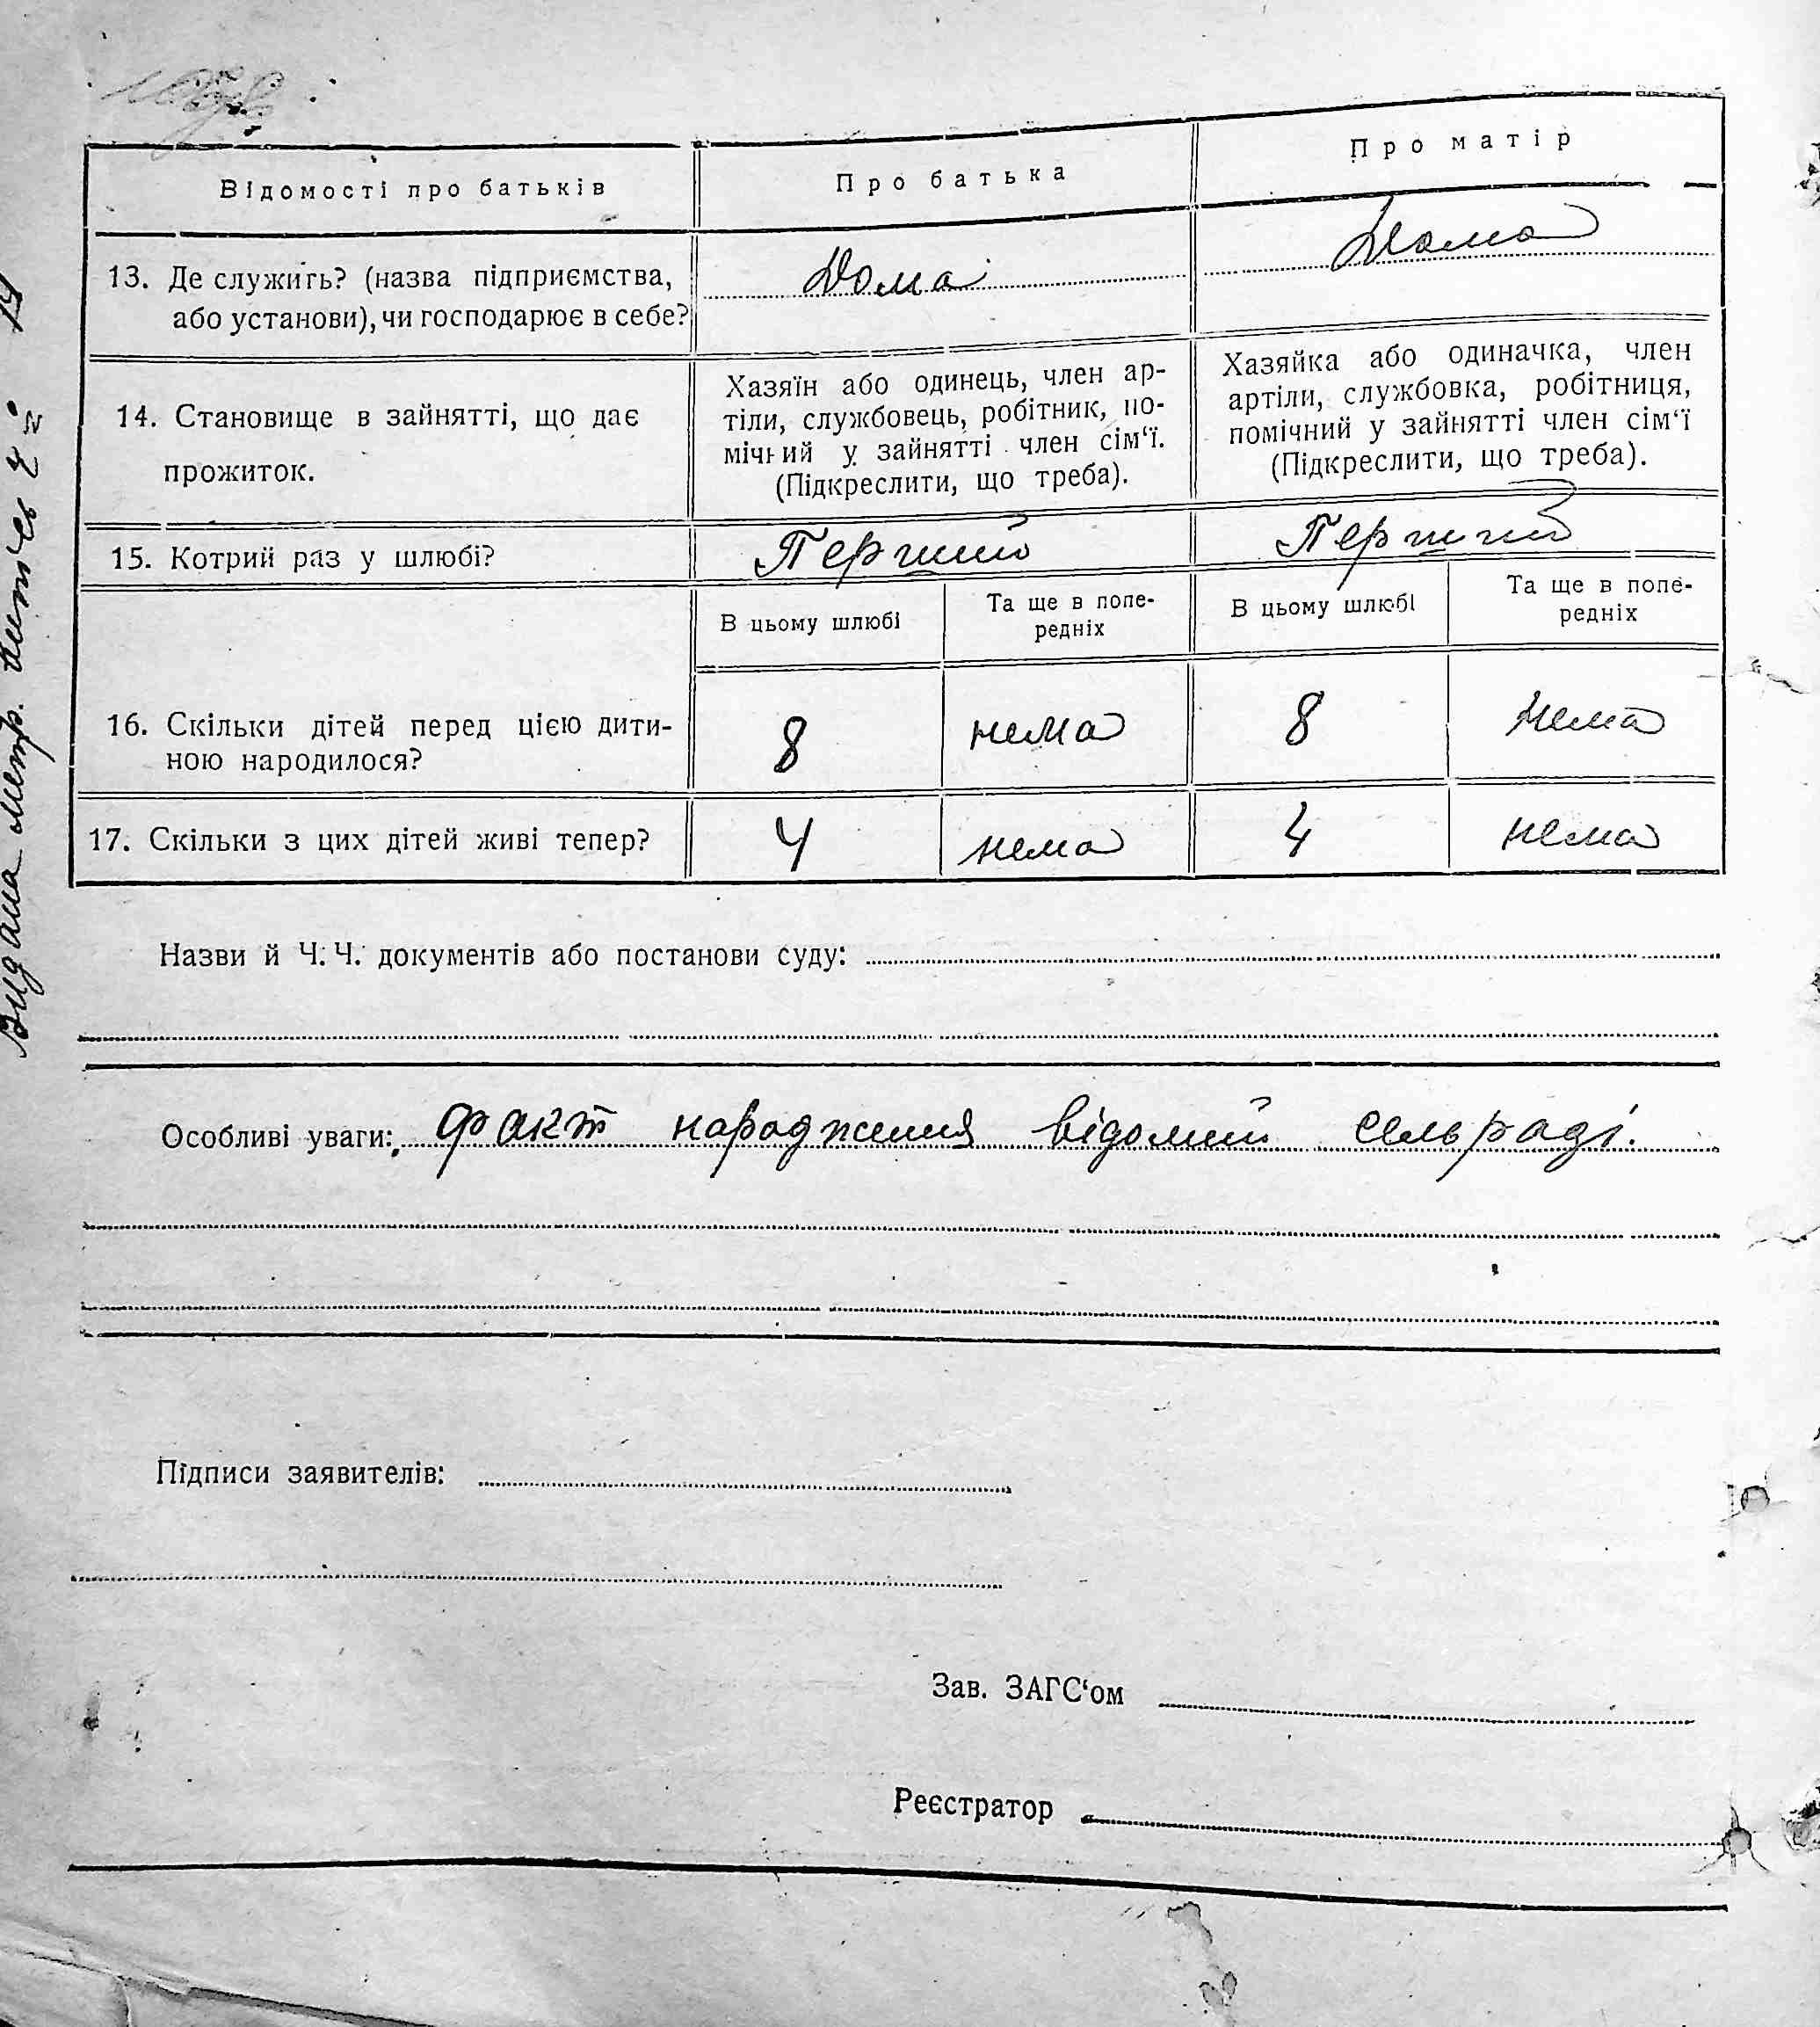 Відомості про батьків
Про батька
Про матір
13. Де служить? (назва підприємства,
або установи), чи господарює в себе?
Дома
Дома
14. Становище в зайнятті, що дає
прожиток.
Хазяїн або одинець, член ар-
тіли, службовець, робітник, по-
мічний у зайнятті член сім‘ї.
(Підкреслити, що треба).
Хазяйка або одиначка, член
артіли, службовка, робітниця,
помічний у зайнятті член сім‘ї
(Підкреслити, що треба).
15. Котрий раз у шлюбі?
Перший
Перший
В цьому шлюбі
Та ще в попе-
редніх
В цьому шлюбі
Та ще в попе-
редніх
16. Скільки дітей перед цією дити-
ною народилося?
8
нема
8
нема
17. Скільки з цих дітей живі тепер?
4
нема
4
нема
Назви й Ч. Ч. документів або постанови суду:
Особливі уваги: Факт народження відомий сельраді.
Підписи заявителів:
Зав. ЗАГС‘ом
Реєстратор
Видана метр.